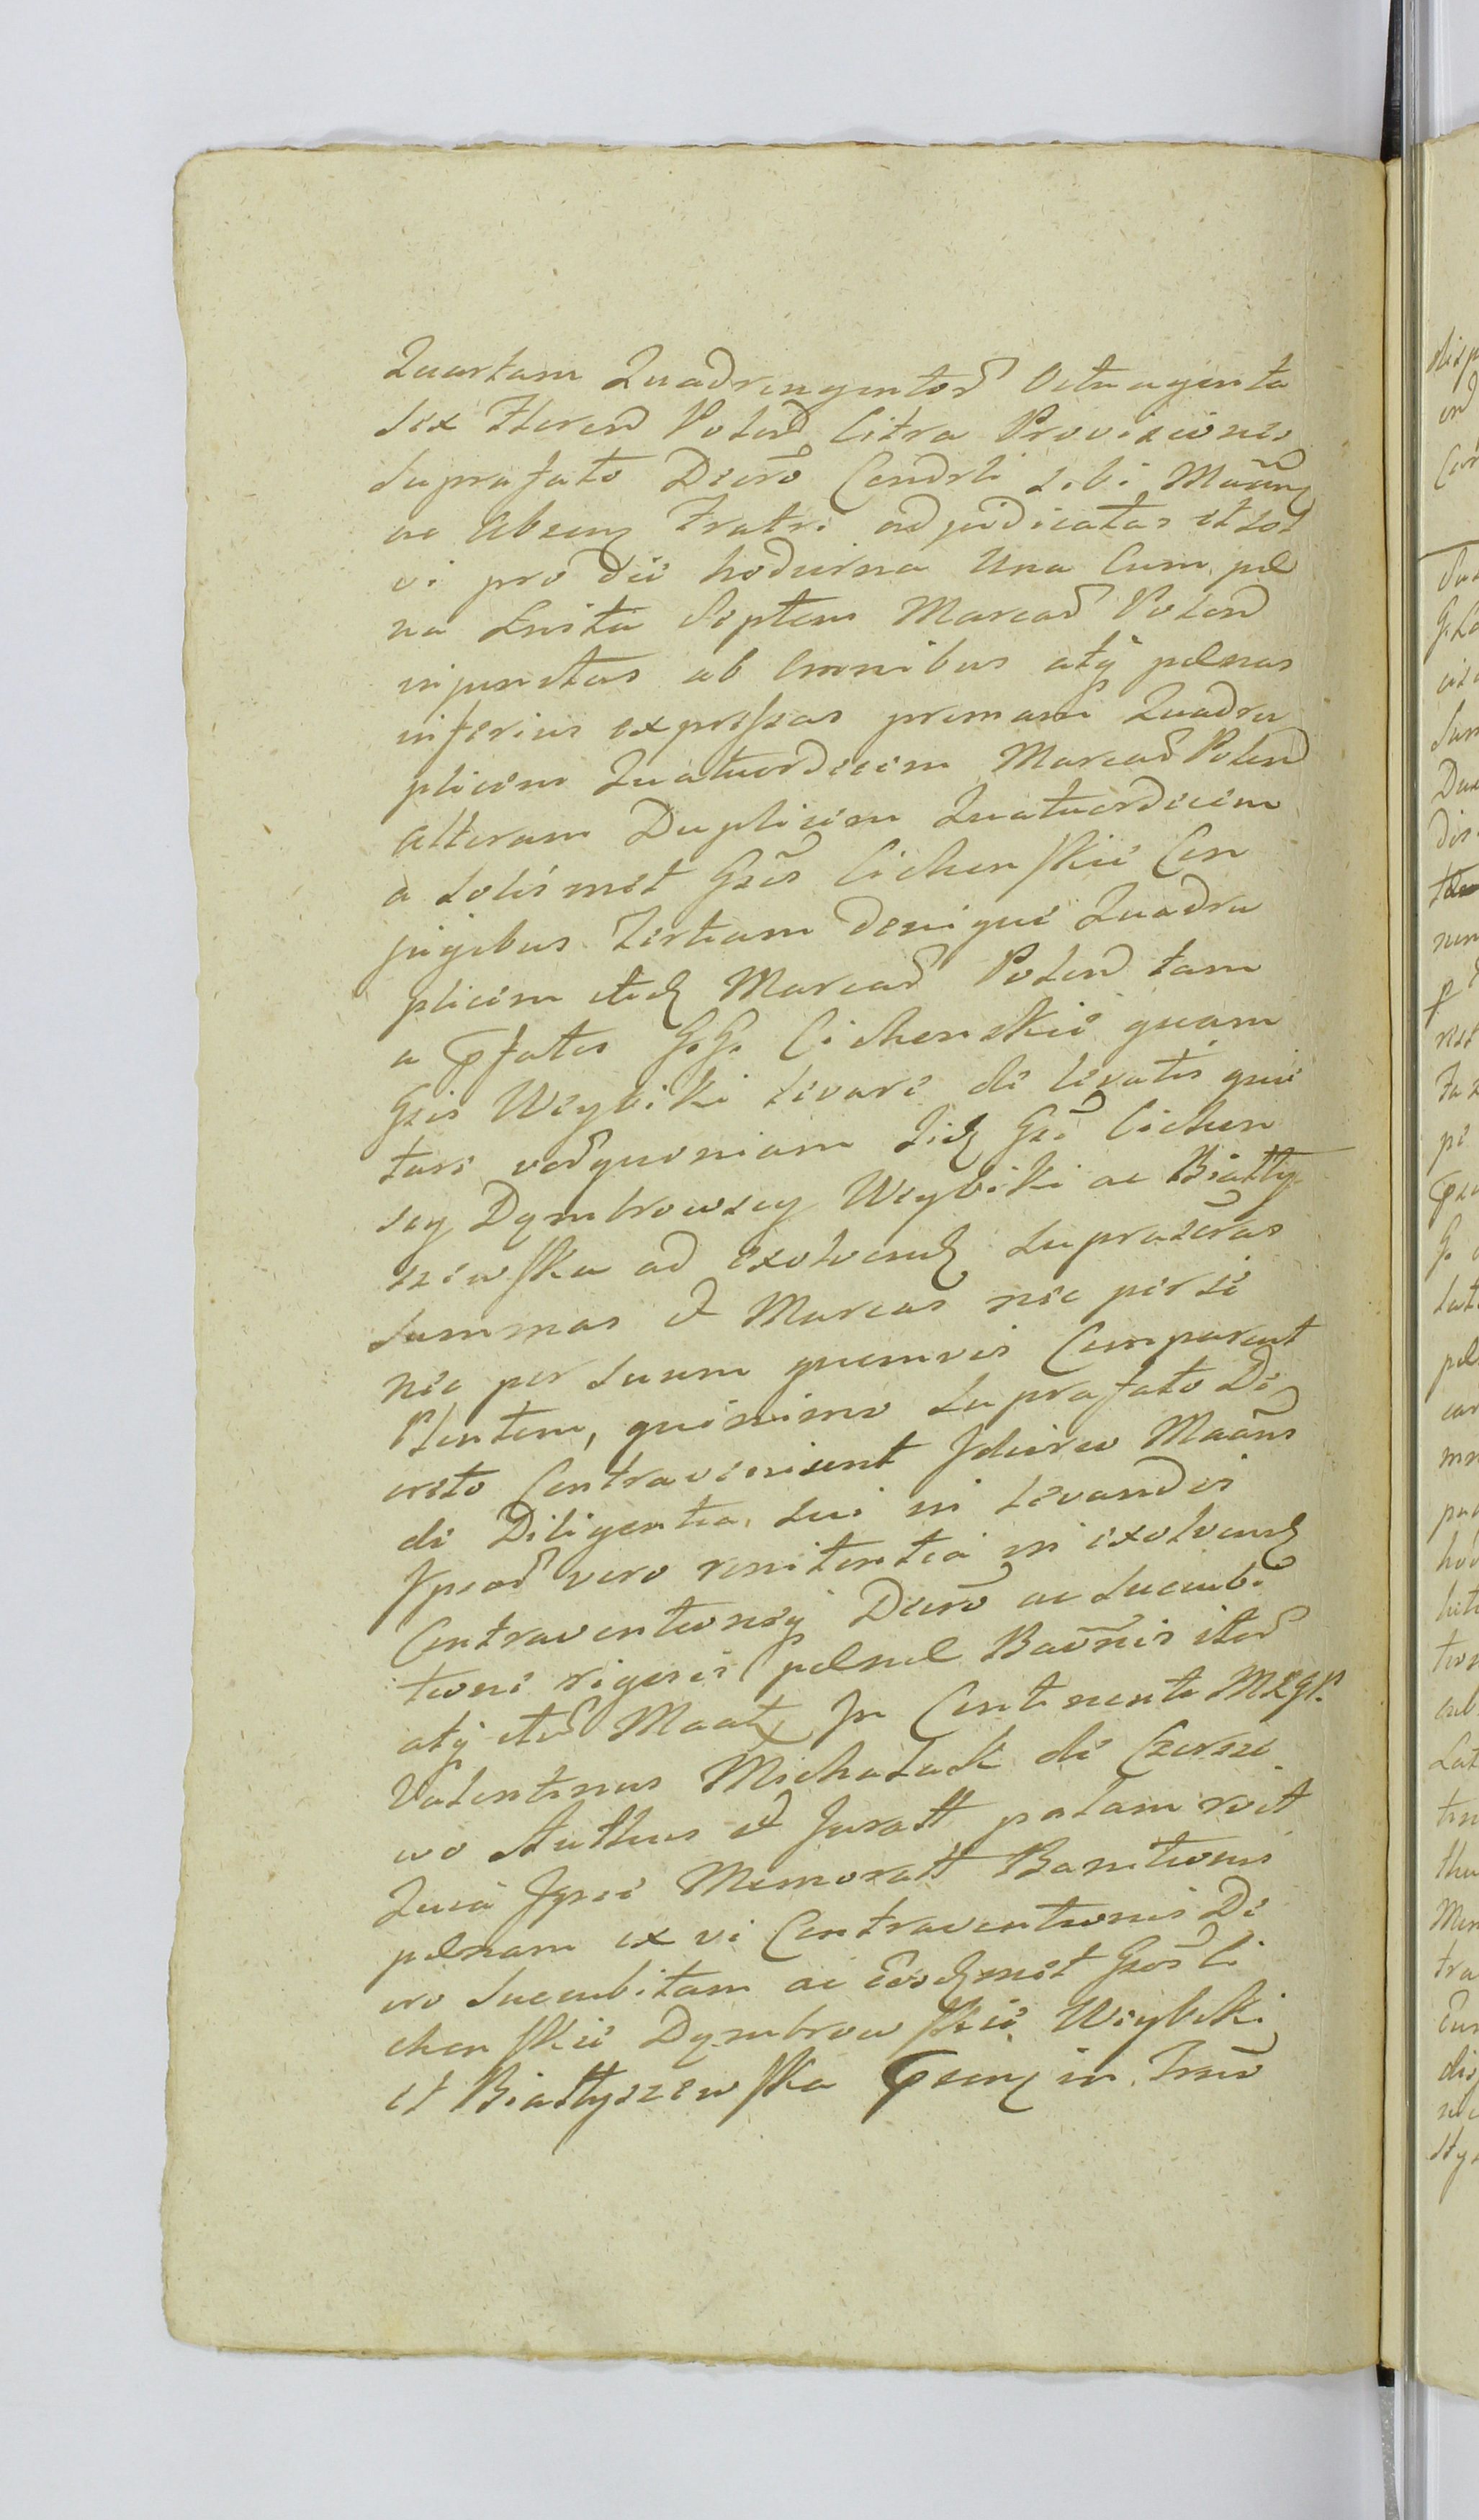 Quartam Quadringentor Octuaginta
sex Floren Polon Citra Provisiones
suprafato Decro Condrli sibi Maãnz
ac Absenz Fratri adjudicatas et sol
vi pro die hodierna Una Cum pœ
na Luita Septem Marcar Polon
injunctas ab Omnibus atq pœnas
inferius expressas primam Quadru
plicem Quatuordecim Marcar Polon
alteram Duplicem Quatuordecim
a solismet Gsis Cichenskie Con
jugibus Tertiam denique Quadru
plicem itid Marcar Polon tam
a pfatis G.G. Cichenskie quam
Gsis Weybiki levare de levatis quie
tare vodquoniam Iid Gsi Cichen
scy Dymbrowscy Weybiki ac Białły
szewska ad exolvend supraseras
summas et Marcas nec per se
nec per suum quemvis Comparent
Plentem, quinimo suprafato De
creto Contravenisent Idcirco Maãns
de Diligentia sui in levandis
Ipsar vero renitentia in exolvend
Contraventionisq Decro ac sucumbi
tioni rigeris pœnœ Baõnis itar
atq ita Maatz In Continenti MSGR
Valentinus Michalack de Czersze
wo Authus et Juratt palam voit
Quia Ipse Memoratt Banitionis
pœnam ex vi Contraventionis De
cro sucumbitam ac Eosdmet Gsos Ci
chenskie Dymbrowskie Weybiki
et Białłyszewska psenz in Fr̃is